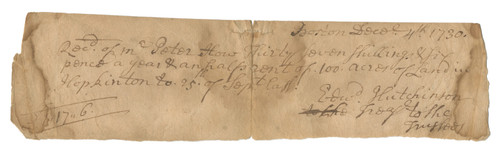 Boston Decer 4th 1730.
Recd. of mr Peter How Thirty seven Shillings & Six
pence a year & an half's rent of 100 acres of Land in
Hopkinton to 25. of Sept last
Edwd. Hutchinson
to the Treas to the
Trustees
17=6